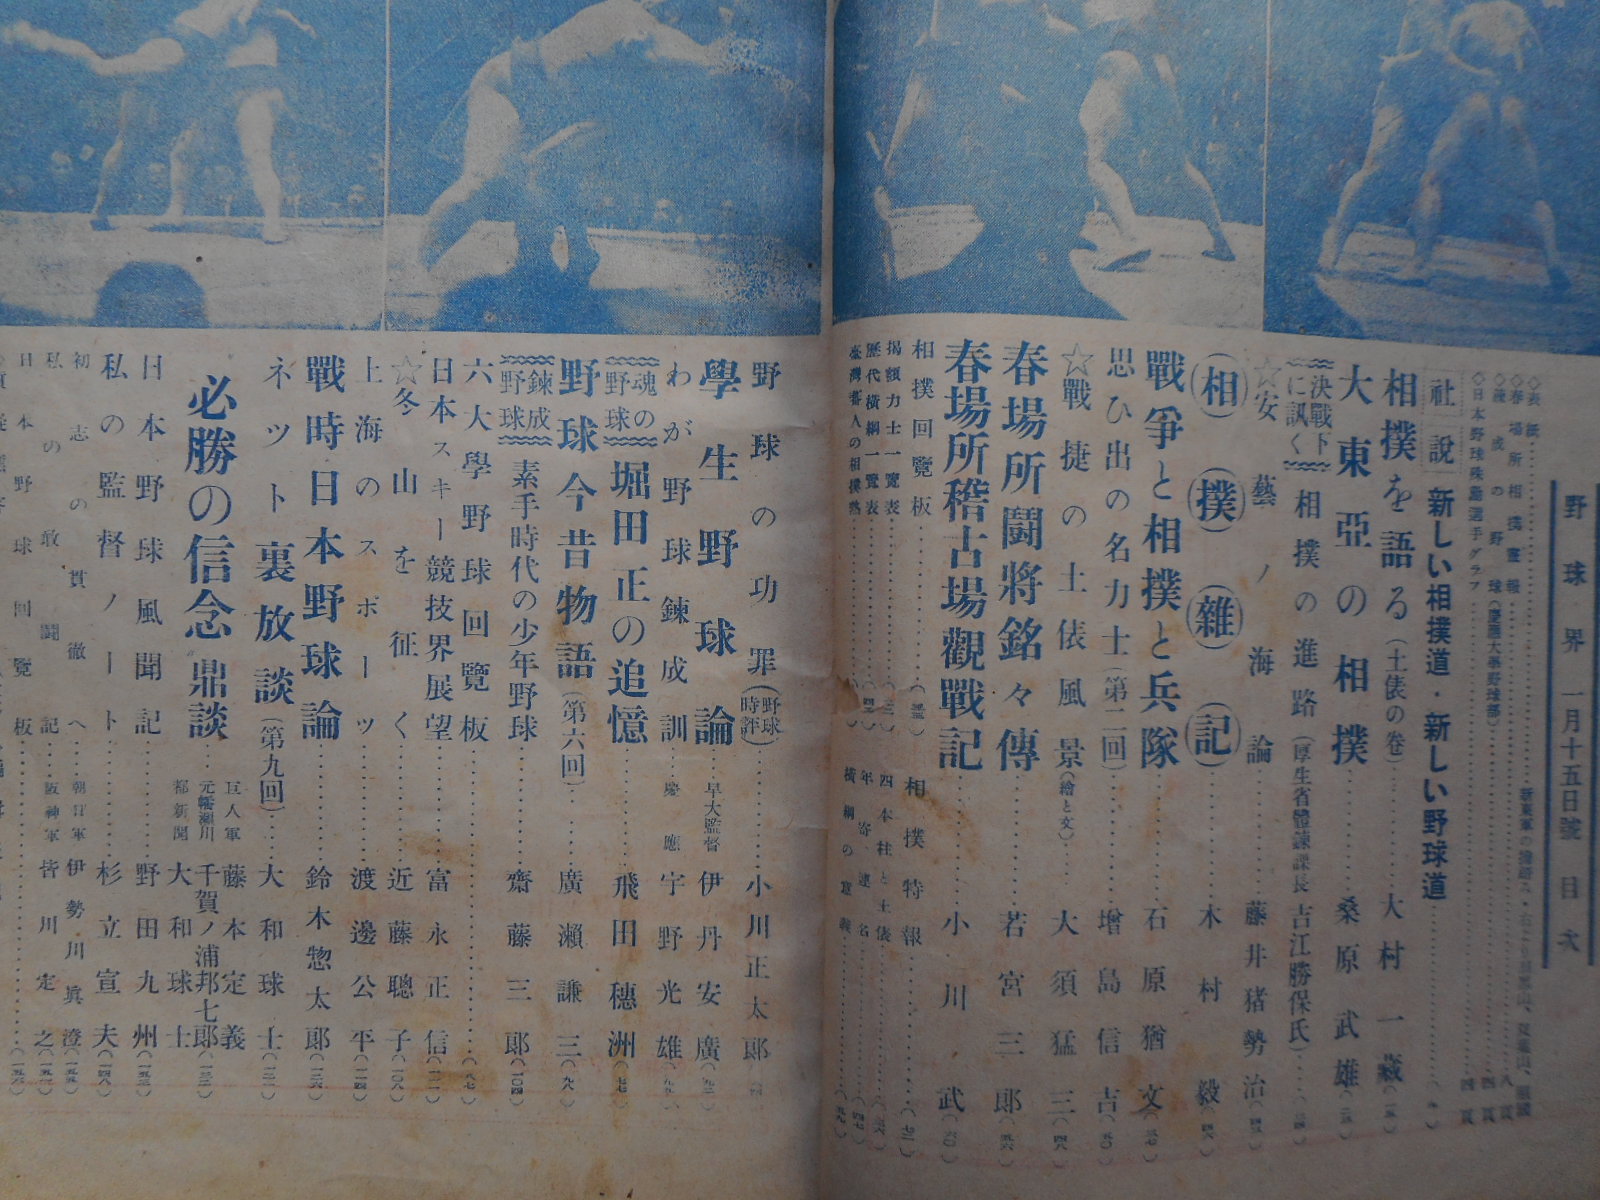 野球界 一月十五日號 目次
◇表紙
◇春場所相撲畫報 八頁
の野球(慶應大學野球部) 四頁
◇日本野球殊勳選手グラフ 四頁
社說 新しい相撲道・新しい野球道
相撲を語る(土俵の巻) 大村一藏
大東亞の相撲 桑原武雄
決戰下に訊く 相撲の進路(厚生省體鍊課長 吉江勝保氏)
☆安藝ノ海論 藤井猪勢治
(相)(撲)(雜)(記) 木村毅
戰爭と相撲と兵隊 石原猶文
思ひ出の名力士(第二回) 增島信吉
☆戰捷の土俵風景(繪と文) 大須猛三
春場所鬪將銘々傳 若宮三郞
春場所稽古場觀戰記 小川武
相撲回覽板
相撲特報
揭額力士一覽表
四本柱と土俵
歷代橫綱一覽表
年寄連名
臺灣蕃人の相撲熱
野球の功罪(野球時評) 小川正太郞
學生野球論 早大監督 伊丹安廣
わが野球鍊成訓 慶應 宇野光雄
魂の野球 堀田正の追憶 飛田穗洲
野球今昔物語(第六回) 廣瀨謙三
鍊成野球 素手時代の少年野球 齋藤三郞(一〇四)
六大學野球回覽板
日本スキー競技界展望 富永正信
☆冬山を征く 近藤聰子(一〇八)
上海のスポーツ 渡邊公平
戰時日本野球論 鈴木惣太郞
ネット裏放談(第九回) 大和球士
必勝の信念 鼎談 巨人軍 藤本定義 元幡瀨川 千賀ノ浦邦七郞 都新聞 大和球士
日本野球風聞記 野田九州
私の監督ノート 杉立宣夫(一四八)
初志の貫徹へ 朝日軍 伊勢川眞澄
私の敢鬪記 阪神軍 皆川定之
日本野球回覽板